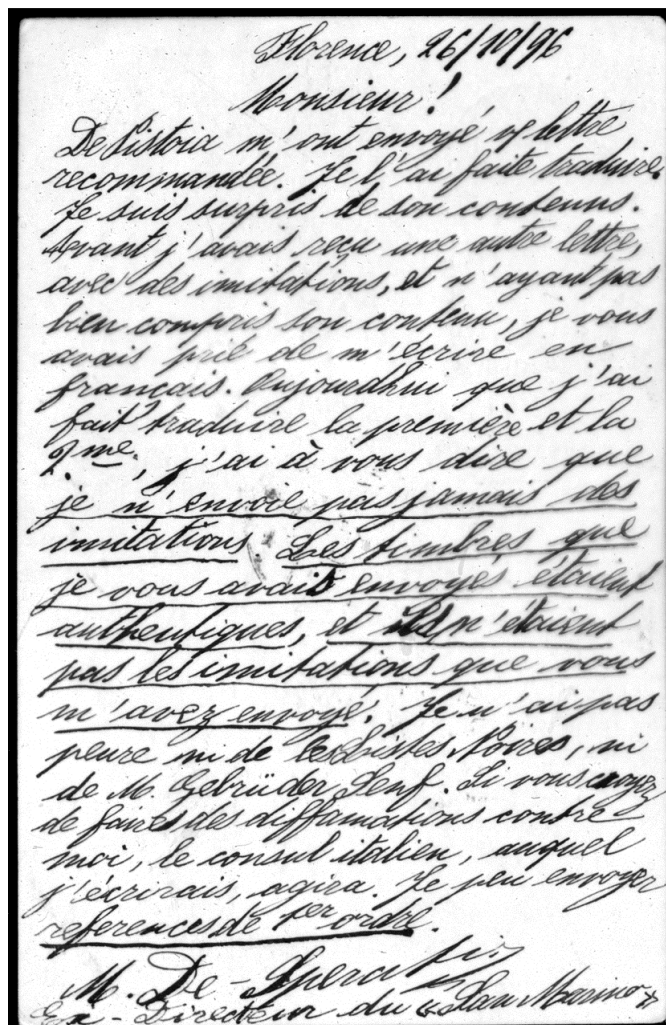 Florence, 26/10/96
Monsieur!
De Pistoia m'ont envoyé v/ lettre
recommandée. Je l'ai faite traduire.
Je suis surpris de son contenus.
Avant j'avais reçu une autre lettre,
avec des imitations, et n'ayant pas
bien compris son contenu, je vous
avais prié de m'écrire en
français. Aujourdhui que j'ai
fait traduire la première et la
2.me, j'ai à vous dire que
je n'envoie pas jamais des
imitations. Les timbres que
je vous avais envoyés étaient
authentiques, et ils n'étaient
pas les imitations que vous
m'avez envoyé. Je n'ai pas
peure ni de les Listes Noires, ni
de M. Gebrüder Senf. Si vous
de faires des diffamations contre
moi, le consul italien, auquel
j'écrirais, agira. Je peu envoyer
references de 1er ordre.
M. De-Sperati
Ex-Directeur du "San Marino"